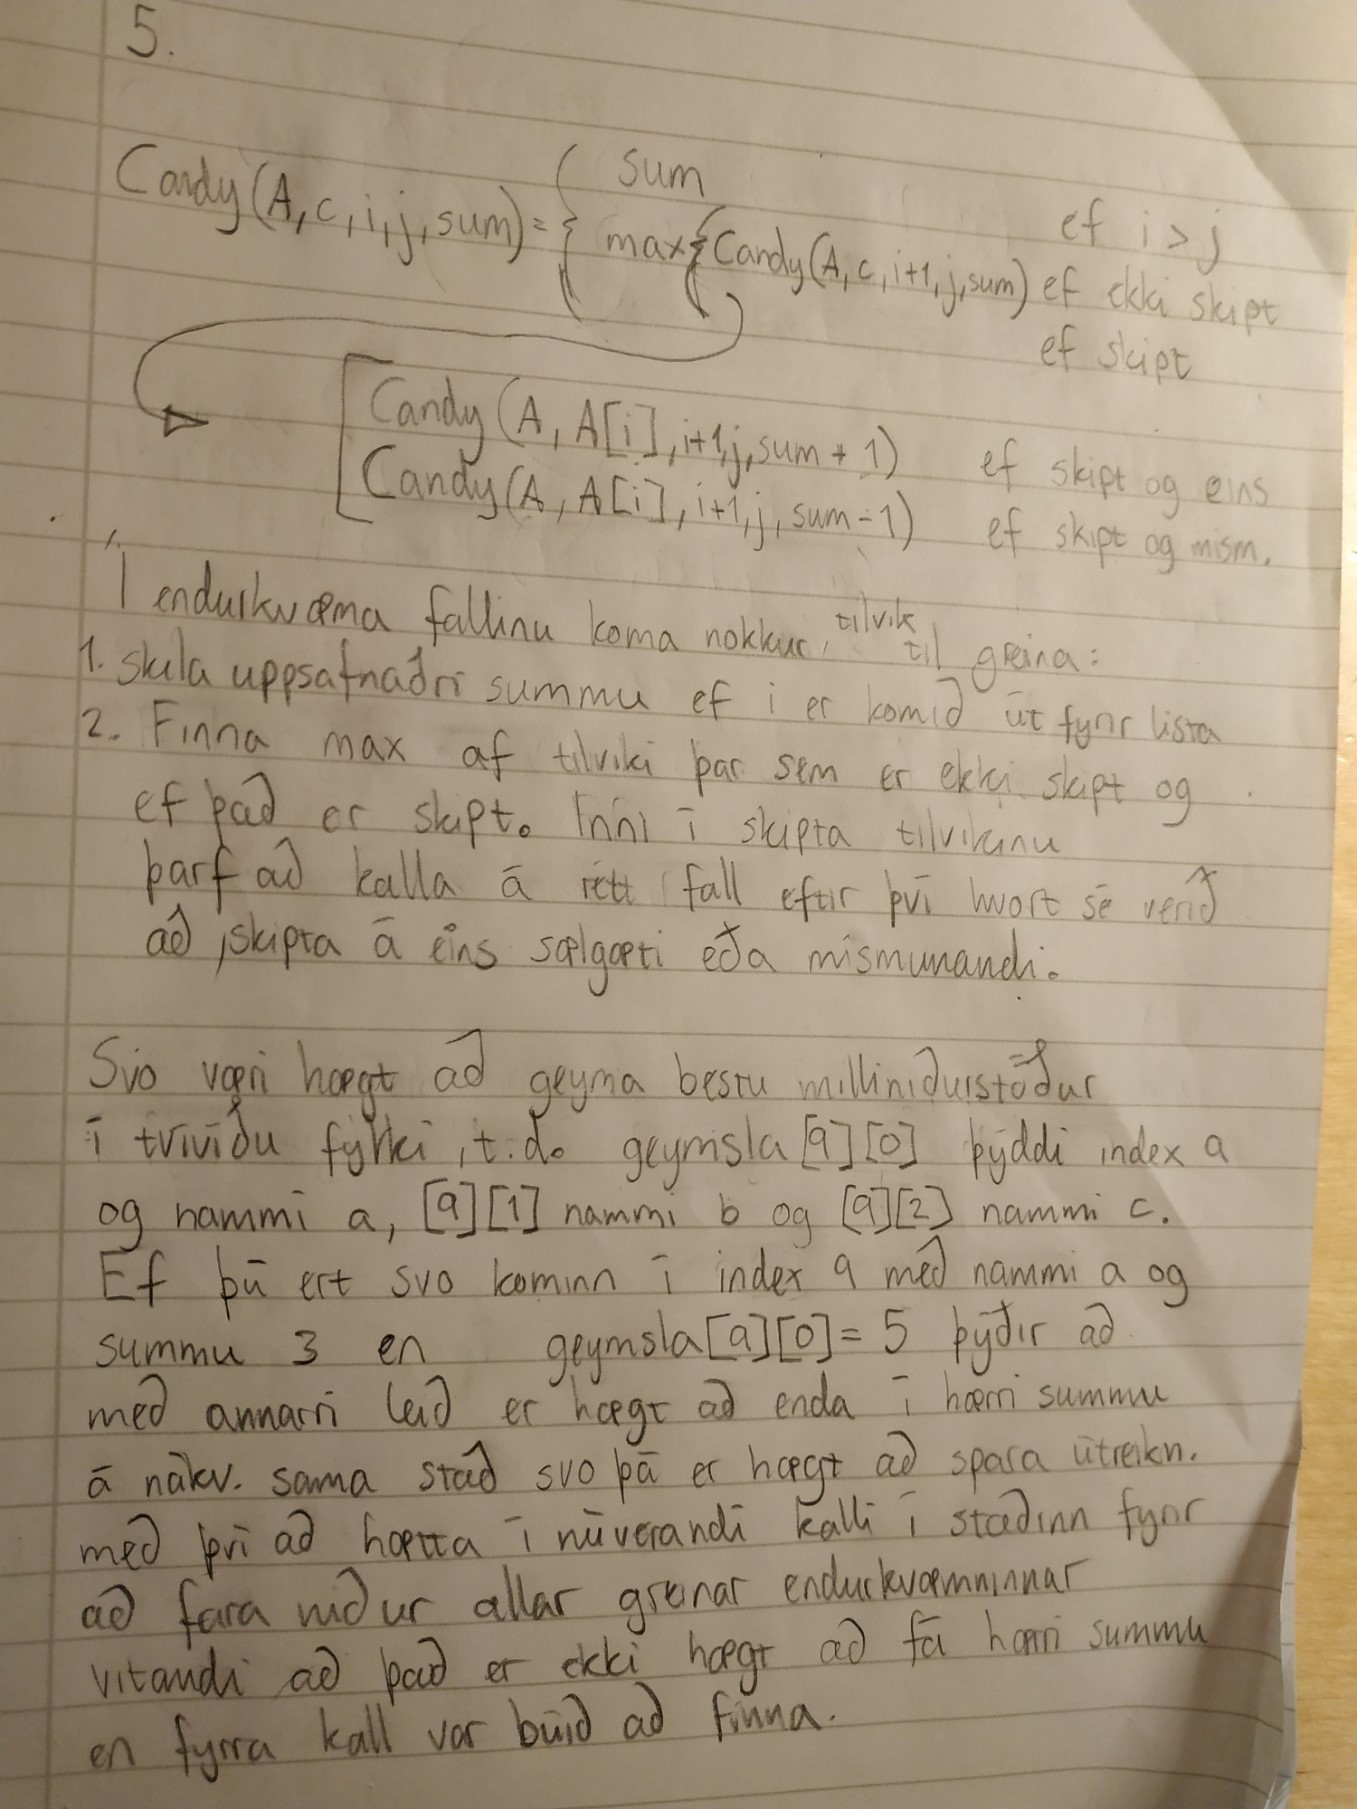 5.
Candy(A, c, i, j, sum) = { sum ef i > j
max { Candy(A, c, i+1, j, sum) ef ekki skipt
ef skipt
Candy(A, A[i], i+1, j, sum + 1) ef skipt og eins
Candy(A, A[i], i+1, j, sum - 1) ef skipt og mism.
Í endurkvæma fallinu koma nokkur tilvik til greina:
1. Skila uppsafnaðri summu ef i er komið út fyrir lista
2. Finna max af tilviki þar sem er ekki skipt og
ef það er skipt. Inní í skipta tilvikinu
þarf að kalla á rétt fall eftir því hvort sé verið
að skipta á eins sælgæti eða mismunandi.
Svo væri hægt að geyma bestu milliniðurstöður
í tvívíðu fylki, t.d. geymsla[9][0] þýddi index 9
og nammi a, [9][1] nammi b og [9][2] nammi c.
Ef þú ert svo kominn í index 9 með nammi a og
summu 3 en geymsla[9][0] = 5 þýðir að
með annarri leið er hægt að enda í hærri summu
á nákv. sama stað svo þá er hægt að spara útreikn.
með því að hætta í núverandi kalli í staðinn fyrir
að fara niður allar greinar endurkvæmninnar
vitandi að það er ekki hægt að fá hærri summu
en fyrra kall var búið að finna.